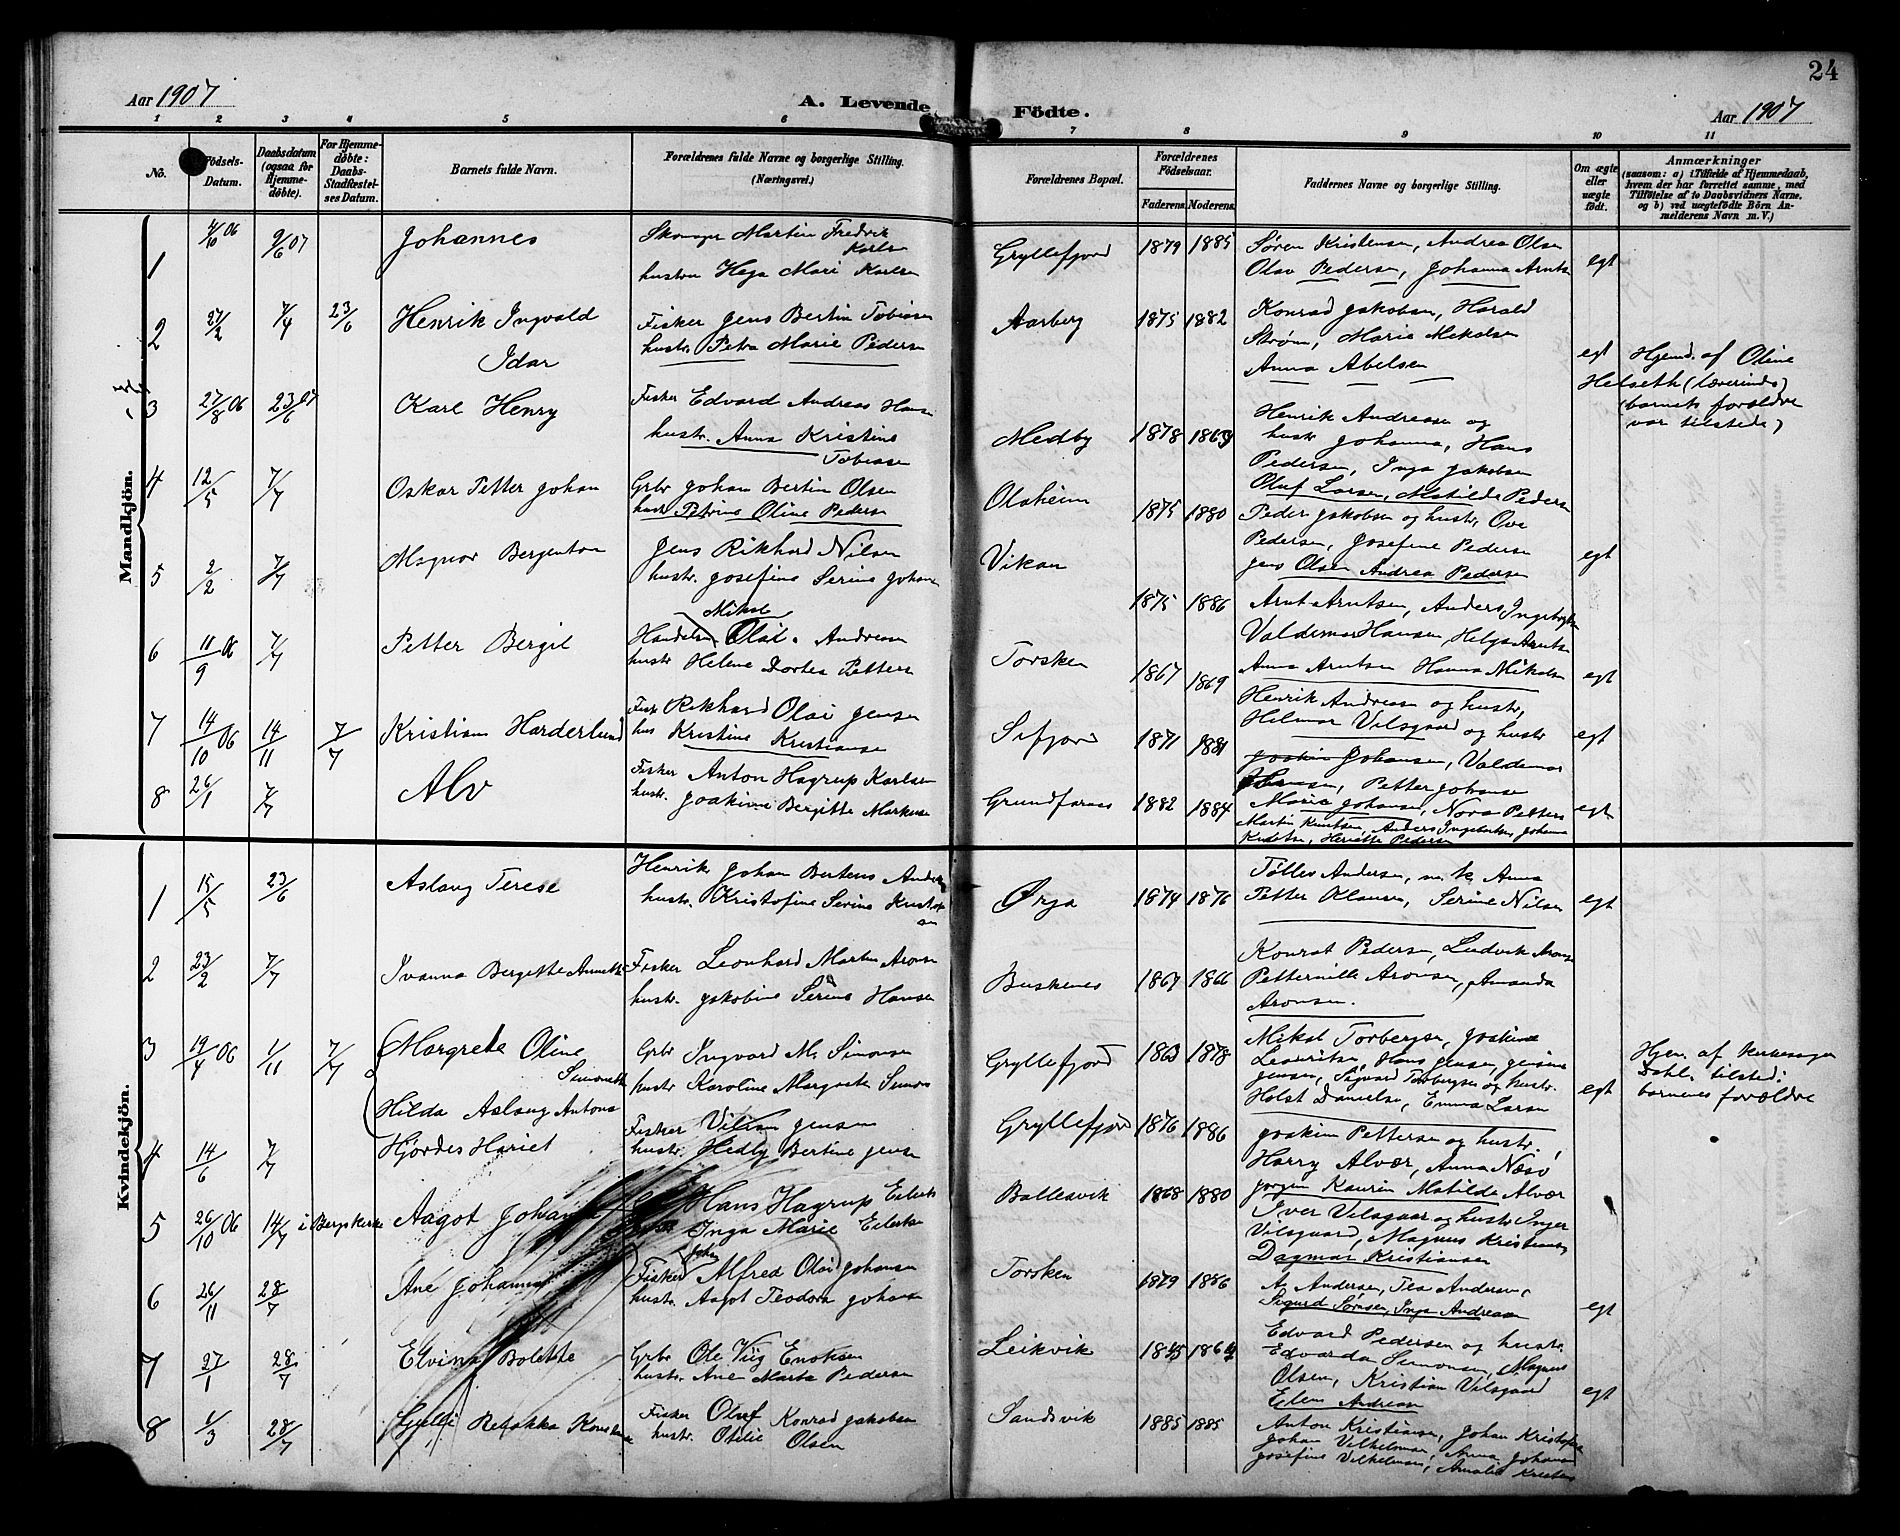 24
Aar 1907 A. Levende Födte. Aar 1907
1 2 3 4 5 6 7 8 9 10 11
No. Födsels-Datum. Daabsdatum (ogsaa for Hjemmedöbte). For Hjemmedöbte: Daabs-Stadfæstelses Datum. Barnets fulde Navn. Forældrenes fulde Navne og borgerlige Stilling. (Næringsvei.) Forældrenes Bopæl. Forældrenes Födselsaar. Faderens. Moderens. Faddernes Navne og borgerlige Stilling. Om ægte eller uægte födt. Anmærkninger (saasom: a) i Tilfælde af Hjemmedaab, hvem der har forrettet samme, med Tilföielse af to Daabsvidners Navne, og b) ved uægtefödte Börn Anmelderens Navn m. V.)
Mandkjön.
1 9/6 07 Johannes Martin Fredrik Karlsen
hustru Mari Karlsen Gryllefjord 1879 1885 Søren Kristensen, Andrea Olsen
Olav Pedersen, Johanna Arntsen egt
2 27/2 7/4 23/6 Henrik Ingvald
Idar Fisker Jens Bertin Tobiasen
hustr. Petra Marie Pedersen Aarberg 1875 1882 Konrad Jakobsen, Harald
Strøm, Marie Mikalsen
Anna Abelsen egt Hjemd. af Oline
Helseth (lærerinde)
(barnets forældre
var tilstede)
3 27/8 06 23/6 07 Karl Henry Fisker Edvard Andreas Hansen
hustr. Anna Kristine
Tobiasen Medby 1878 Henrik Andreasen og
hustr Johanna, Hans
Pedersen, Inga Jakobsen
4 12/5 7/7 Oskar Petter Johan Grbr Johan Bertin Olsen
hustr Petrine Oline Pedersen Olaheim 1875 1880 Oluf Larsen, Matilde Pedersen
Peder Jakobsen og hustr, Ove
5 2/2 7/7 Magnor Bergenton Jens Rikhard Nilsen
hustr. Josefine Serine Johans Vikan 1875 1886 Pedersen, Josefine Pedersen
Jens Olsen Andrea Pedersen egt
6 11/9 06 7/7 Petter Bergit Olai Andreasen
hustr Helene Dortea Petters Torsken 1867 1869 Arnt Arntsen, Anders Ingebrigtsen
Valdemar Hansen, Helga Arntsen
Anna Arntsen Hanna Mikalsen egt
7 14/10 06 14/11 7/7 Kristian Harderlund Fisk Rikhard Olai Jensen
hus Kristine Kristiansen Sifjord 1871 1881 Henrik Andreasen og hustr,
Helmar Vilsgaard og hustr egt
8 26/1 7/7 Alv Fisker Anton Hagrup Karlsen
hustr. Joakime Bergitte Markusen Grundfarnes 1882 1884 Johansen, Valdemar
Hansen, Petter Johansen
Marie Johansen, Nora Petters
Martin Knutsen, Anders Ingebrigtsen, Johanna
Pedersen egt
Kvindekjön.
1 15/5 23/6 Aslaug Terese Henrik Johan Bertens Anders
hustr. Kristofine Serine Kristofersen 1874 1876 Tølles Andersen, Anna
Petter Klausen, Serine Nilsen egt
2 23/2 7/7 Ivanna Bergette Annette Fisker Leonhard Martin Aronsen
hustr. Jakobine Serine Hansen Buskenes 1867 1866 Konrat Pedersen, Ludvik Aronsen
Petternille Aronsen, Amanda
Aronsen.
3 19/4 06 1/11 7/7 Margrete Oline
Simonette Grbr Ingvard M. Simonsen
hustr Karoline Margrete Simons Gryllefjord 1863 1878 Mikal Torbergsen, Joakime
Lauritsen, Hans Jensen, Jensine
Jensen, Sigvard Torbergsen og hustr.
Holst Danielsen, Emma Larsen egt Hjem. af kirkesanger
Dahl, tilsted:
barnets forældre
4 14/6 7/7 Hilda Aslaug Antona
Hjördes Hariet Fisker Jensen
hustr. Hedly Bertine Jensen Gryllefjord 1876 1886 Joakim Pettersen og hustr.,
Harry Alvær, Anna Næsø
Jørgen Kaurin Matilde Alvær
5 26/10 06 14/7 i Bergskirke Aagot Johanna Hans Hagrup Eilerts
Inga Marie Eilertsen Ballesvik 1868 1880 Iver Vilsgaar og hustr Inger
Vilsgaard, Magnus Kristiansen
Dagmar Kristiansen
6 26/11 28/7 Ane Johanna Fisker Johan Alfred Olai Johansen
hustr. Aagot Teodora Johansen Torsken 1879 1886 A. Andersen, Tea Andersen,
Sigurd Sørnsen, Inga Andreasen egt
7 27/1 28/7 Elvina Bolette Grbr Ole Viig Enoksen
hustr. Ane Marta Pedersen Leikvik 1845 Edvard Pedersen og hustr.
Edvarda Simonsen, Magnus
Olsen, Kristian Vilsgaard
Ellen Andreasen egt
8 1/3 28/7 Rebekka Fisker Oluf Konrad Jakobsen
hustr. Otelie Olsen Sandsvik 1885 1885 Anton Kristiansen, Johan Kristofersen
Johan Vilhelmsen, Anna Johansen
Josefine Vilhelmsen, Amalie Kristens